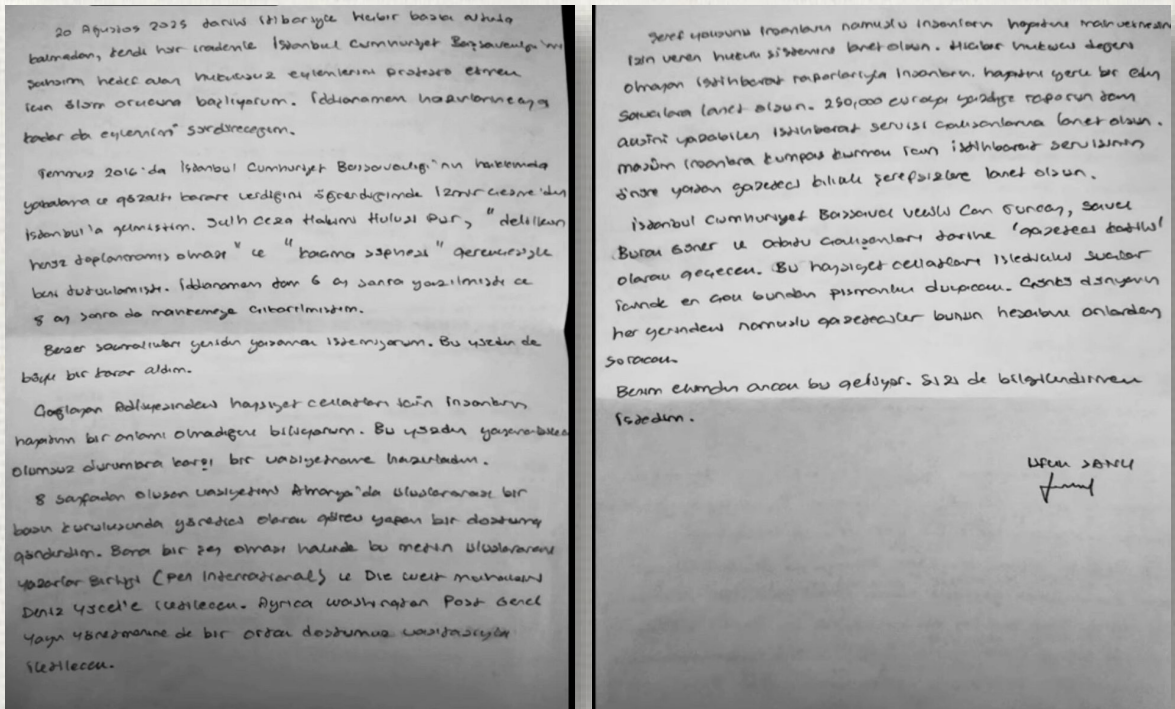 20 Ağustos 2025 tarihi itibariyle hiçbir baskı altında
kalmadan, kendi hür irademle İstanbul Cumhuriyet Başsavcılığı'nın
şahsımı hedef alan hukuksuz eylemlerini protesto etmek
için ölüm orucuna başlıyorum. İddianamem hazırlanıncaya
kadar da eylemimi sürdüreceğim.
Temmuz 2016'da İstanbul Cumhuriyet Başsavcılığı'nın hakkımda
yakalama ve gözaltı kararı verdiğini öğrendiğimde İzmir Çeşme'den
İstanbul'a gelmiştim. Sulh Ceza Hakimi Hulusi Pur, "delillerin
henüz toplanmamış olması" ve "kaçma şüphesi" gerekçesiyle
beni tutuklamıştı. İddianamem tam 6 ay sonra yazılmıştı ve
8 ay sonra da mahkemeye çıkarılmıştım.
Benzer sıkıntıları yeniden yaşamak istemiyorum. Bu yüzden de
böyle bir karar aldım.
Çağlayan Adliyesindeki haysiyet cellatları için insanların
hayatının bir anlamı olmadığını biliyorum. Bu yüzden yaşanabilecek
olumsuz durumlara karşı bir vasiyetname hazırladım.
8 sayfadan oluşan vasiyetimi Almanya'da uluslararası bir
basın kuruluşunda yönetici olarak görev yapan bir dostuma
gönderdim. Bana bir şey olması halinde bu metin uluslararası
Yazarlar Birliği (Pen International) ve Die Welt muhabiri
Deniz Yücel'e iletilecek. Ayrıca Washington Post Genel
Yayın Yönetmenine de bir ortak dostumuz vasıtasıyla
iletilecek.
Şeref yoksunu insanların namuslu insanların hayatını mahvetmesine
izin veren hukuk sistemine lanet olsun. Hiçbir hukuki değeri
olmayan istihbarat raporlarıyla insanların hayatını yerle bir eden
savcılara lanet olsun. 250,000 euroya yazdığı raporun tam
aksini yazabilen istihbarat servisi çalışanlarına lanet olsun.
masum insanlara kumpas kurmak için istihbarat servisinin
önüne yatan gazeteci kılıklı şerefsizlere lanet olsun.
İstanbul Cumhuriyet Başsavcı vekili Can Tuncay, savcı
Burak Güner ve adadu çalışanları tarihe 'gazeteci katili'
olarak geçecek. Bu haysiyet cellatları işledikleri suçlar
içinde en çok bundan pişmanlık duyacak. Çünkü dünyanın
her yerindeki namuslu gazeteciler bunun hesabını onlardan
soracak.
Benim elimden ancak bu geliyor. Sizi de bilgilendirmek
istedim.
UFUK ŞANLI